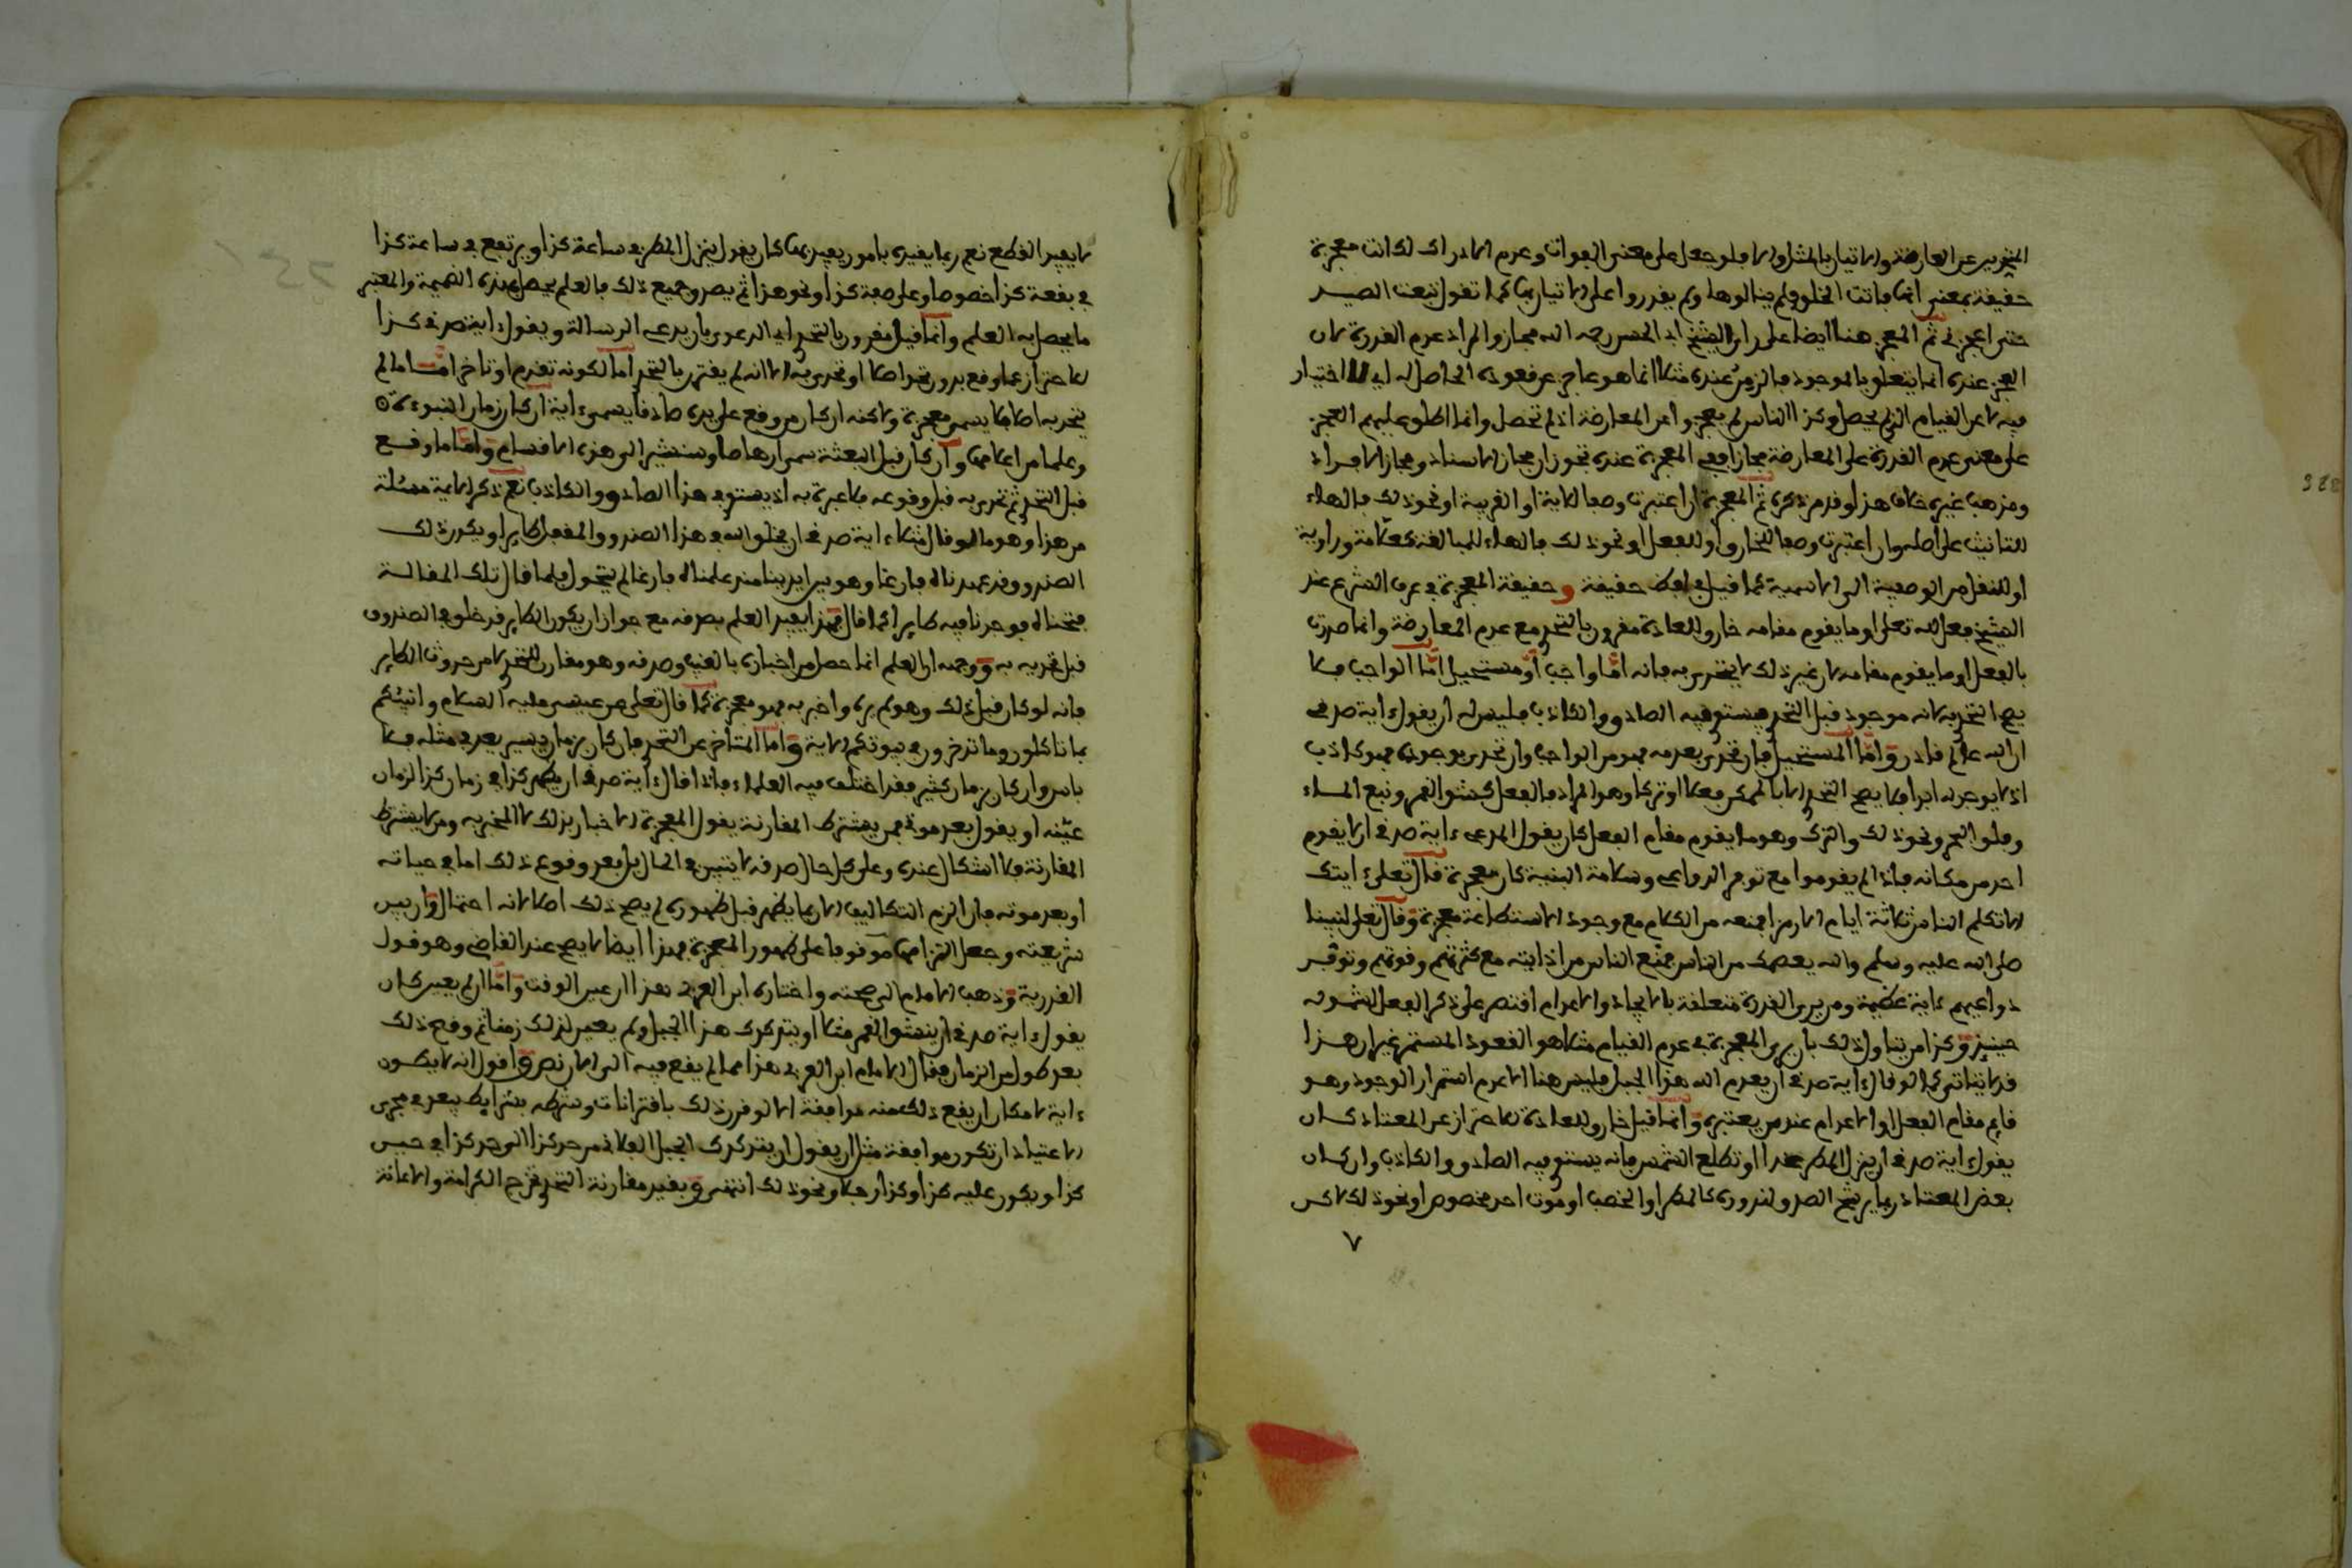 التحويز عن المعارضة والاتيان بالمثل والا فلو جعل على معنى الفوات وعدم الادراك لكانت معجزة
حقيقة بمعنى انها فاتت الخلق ولم ينالوها ولم يقدروا على الاتيان بها كما تقول تبعت الصيد
حتى اعجزني ثم المعجز هنا ايضا على راي الشيخ ابي الحسن رحمه الله مجاز والمراد عدم القدرة لان
العجز عنده انما يتعلق بالموجود فالزمن عنده مثلا انما هو عاجز عن قعوده الحاصل له اي لا اختيار
فيه لا عن القيام الذي لم يحصل وكذا الناس لم يعجزوا عن المعارضة اذ لم تحصل وانما اطلق عليهم العجز
على معنى عدم القدرة على المعارضة مجازا ففي المعجزة عنده تجوزان مجاز الاسناد ومجاز الافراد
ومذهب غيره خلاف هذا وقد مر ذكره ثم المعجزة ان اعتبرت وصفا للاية او الغريبة او نحو ذلك فالهاء
للتانيث على اصله وان اعتبرت وصفا للخارق او للفعل او نحو ذلك فالهاء للمبالغة كعلامة وراوية
او للنقل من الوصفية الى الاسمية كما قيل في لفظ حقيقة و حقيقة المعجزة في عرف الشرع عند
الشيخ فعل الله تعلى او ما يقوم مقامه خارق للعادة مقرون بالتحدي مع عدم المعارضة وانما صدرت
بالفعل او ما يقوم مقامه لان غير ذلك لا يتحدى به فانه اما واجب او مستحيل اما الواجب فلا
يصح التحدي به لانه موجود قبل التحدي ويستوي فيه الصادق والكاذب فليس له ان يقول ءاية صدقي
ان الله عالم قادر واما المستحيل فان تحدى بعدمه فهو من الواجب وان تحدى بوجوده فهو كاذب
اذ لا يوجد ابدا فلا يصح التحدي الا بالممكن فعلا او تركا وهو المراد بالفعل كشق القمر ونبع الماء
وفلق البحر ونحو ذلك والترك وهو ما يقوم مقام الفعل كان يقول المدعي ءاية صدقي ان لا يقوم
احد من مكانه فاذا لم يقوموا مع توفر الدواعي وسلامة البنية كان معجزة قال تعلى ءايتك
الا تكلم الناس ثلاثة ايام الا رمزا فمنعه من الكلام مع وجود الاستطاعة معجزة وقال تعلى لنبينا
صلى الله عليه وسلم والله يعصمك من الناس فمنع الناس من اذايته مع كثرتهم وقوتهم وتوفر
دواعيهم ءاية عظيمة ومن يرى القدرة متعلقة بالايجاد والاعدام اقتصر على ذكر الفعل لشموله
حينئذ وكذا من يتاول ذلك بان يرى المعجزة في عدم القيام مثلا هو القعود المستمر غير ان هذا
قد لا يتاتى كما لو قال ءاية صدقي ان يعدم الله هذا الجبل فليس هنا الا عدم استمرار الوجود وهو
قايم مقام الفعل او الاعدام عند من يعتبره وانما قيل خارق للعادة للاحتراز عن المعتاد كان
يقول ءاية صدقي ان ينزل المطر غدا او تطلع الشمس فانه يستوي فيه الصادق والكاذب وان كان
بعض المعتاد ربما يرشح الصدق لندوره كالمطر او الخصب او موت احد مخصوص او نحو ذلك لاكن
٧
لا يفيد القطع نعم ربما يفيده بامور يقيد بها كان يقول ينزل المطر في ساعة كذا ويرتفع في ساعة كذا
في بقعة كذا خصوصا وعلى صفة كذا ونحو هذا ثم يصدق جميع ذلك فالعلم يحصل بهذه الضميمة والمعتبر
ما يحصل به العلم وانما قيل مقرون بالتحدي اي الدعوى بان يدعي الرسالة ويقول ءاية صدقي كذا
للاحتراز عما وقع بدون تحد اصلا او تحدي به الا انه لم يقترن بالتحدي اما لكونه تقدم او تاخر اما ما لم
يتحد به اصلا فلا يسمى معجزة ولاكنه ان كان من وقع على يده صادقا يسمى ءاية ان كان زمان النبوءة
وعلما من اعلامها وان كان قبل البعثة سمي ارهاصا وسنشير الى هذه الاقسام واما ما وقع
قبل التحدي ثم تحدى به قبل وقوعه فلا عبرة به اذ يستوي في هذا الصادق والكاذب نعم ذكر الايمة مسئلة
من هذا وهو ما لو قال مثلا ءاية صدقي ان يخلق الله في هذا الصندوق المقفل طايرا ويكون ذلك
الصندوق قد عهدناه فارغا وهو بين ايدينا منذ علمناه فارغا لم يتحول فلما قال تلك المقالة
فتحناه فوجدنا فيه طايرا كما قال فهذا يفيد العلم بصدقه مع جواز ان يكون الطاير قد خلق في الصندوق
قبل تحديه به ووجهه ان العلم انما حصل من اخباره بالغيب وصدقه وهو مقارن للتحدي لا من حدوث الطاير
فانه لو كان قبل ذلك وهو لم يره واخبر به فهو معجزة كما قال تعلى عن عيسى عليه السلام وانبئكم
بما تاكلون وما تدخرون في بيوتكم الاية واما المتاخر عن التحدي فان كان بزمان يسير يعد مثله فلا
باس وان كان بزمان كثير فقد اختلف فيه العلماء فاذا قال ءاية صدقي ان يظهر كذا في زمان كذا لزمان
عينه او يقول بعد موتي فمن يشترط المقارنة يقول المعجزة الاخبار بذلك لا المخبر به ومن لا يشترط
المقارنة فلا اشكال عنده وعلى كل حال صدقه لا يتبين في الحال بل بعد وقوع ذلك اما في حياته
او بعد موته فان الزم التكاليف الان بما يظهر قبل ظهوره لم يصح ذلك اصلا لانه احتمال وان بين
شريعته وجعل التزامها موقوفا على ظهور المعجزة فهذا ايضا لا يصح عند القاضي وهو قول
القدرية وذهب الامام الى صحته واختاره ابن العربي هذا ان عين الوقت واما ان لم يعين كان
يقول ءاية صدقي ان ينشق القمر مثلا او يتدكدك هذا الجبل ولم يعين لذلك زمنا ثم وقع ذلك
بعد طول من الزمان فقال الامام ابن العربي هذا مما لم يقع فيه الى الان نص واقول انه لا يكون
ءاية لامكان ان يقع ذلك منه موافقة الا لو قرن ذلك باقترانات وشرطه بشرايط يبعد في مجرى
الاعتياد ان تكون موافقة مثل ان يقول ان يتدكدك الجبل الفلاني من حد كذا الى حد كذا في حين
كذا ويكون عليه كذا وكذا رجلا ونحو ذلك انتهى وبقيد مقارنة التحدي تخرج الكرامة والاعانة